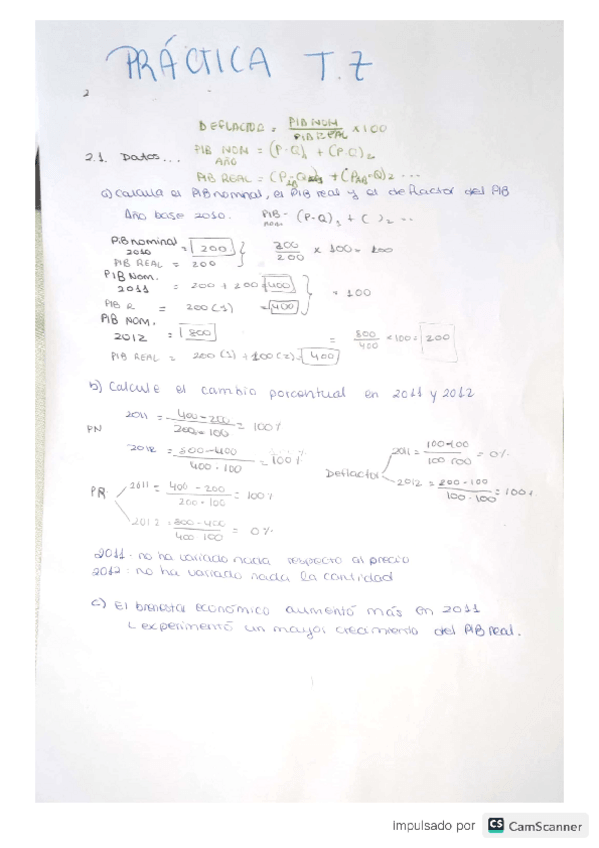 PRÁCTICA T.7
2
DEFLACTOR = PIB NOM / PIB REAL x 100
2.1. Datos... PIB NOM = (P·Q)1 + (P·Q)2
AÑO
PIB REAL =
a) Calcula el PIB nominal, el PIB real y el deflactor del PIB
Año base 2010. PIB nom = (P·Q)1 + ( )2 ...
PIB nominal 2010 = 200
PIB REAL = 200
200 / 200 x 100 =
PIB Nom. 2011 = 200 + 200 = 400
PIB R = 200(1) = 400
= 100
PIB NOM. 2012 = 800
PIB REAL = 200(1) + 100(2) = 400
= 800 / 400 x 100 = 200
b) Calcule el cambio porcentual en 2011 y 2012
PN
2011 = 400 - 200 / 200 · 100 = 100%
2012 = 800 - 400 / 400 · 100 = 100%
Deflactor
2011 = 100-100 / 100·100 = 0%
2012 = 200-100 / 100·100 = 100%
PR
2011 = 400 - 200 / 200 · 100 = 100%
2012 = - 400 / 400·100 = 0%
2011 - no ha variado nada respecto al precio
2012 - no ha variado nada la cantidad
c) El bienestar económico aumentó más en 2011
experimentó un mayor crecimiento del PIB real.
Impulsado por CS CamScanner